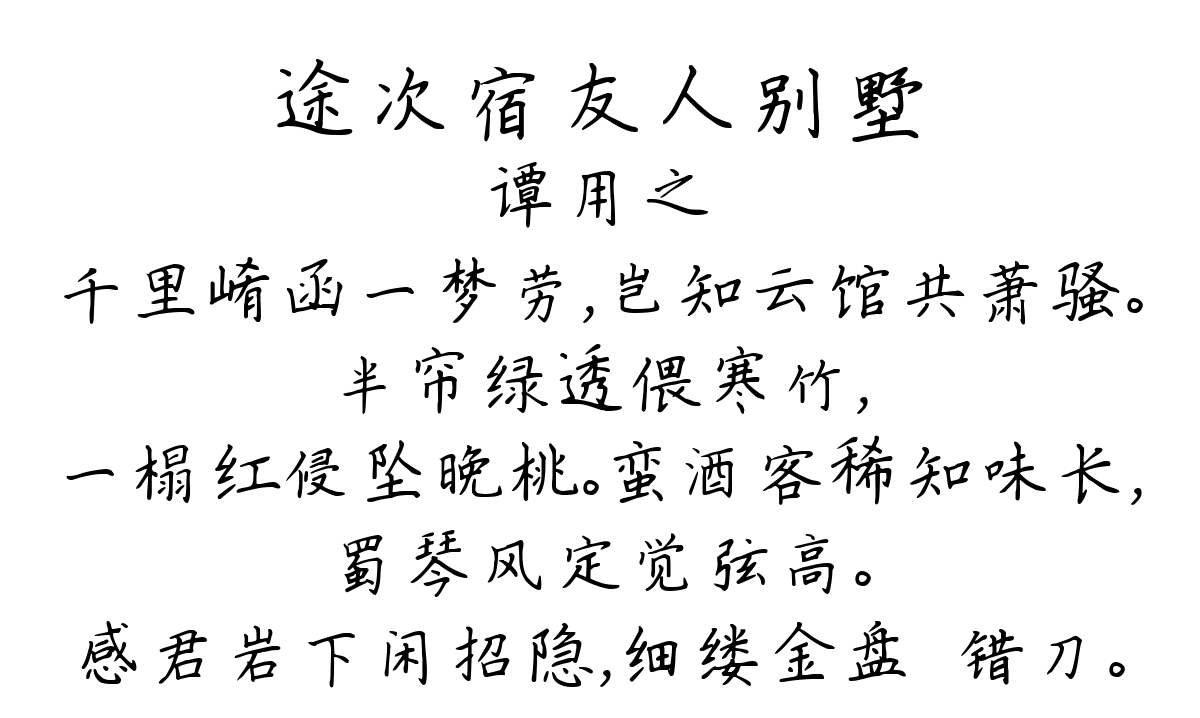 途次宿友人别墅
谭用之
千里崤函一梦劳,岂知云馆共萧骚。
半帘绿透偎寒竹,
一榻红侵坠晚桃。蛮酒客稀知味长,
蜀琴风定觉弦高。
感君岩下闲招隐,细缕金盘 错刀。